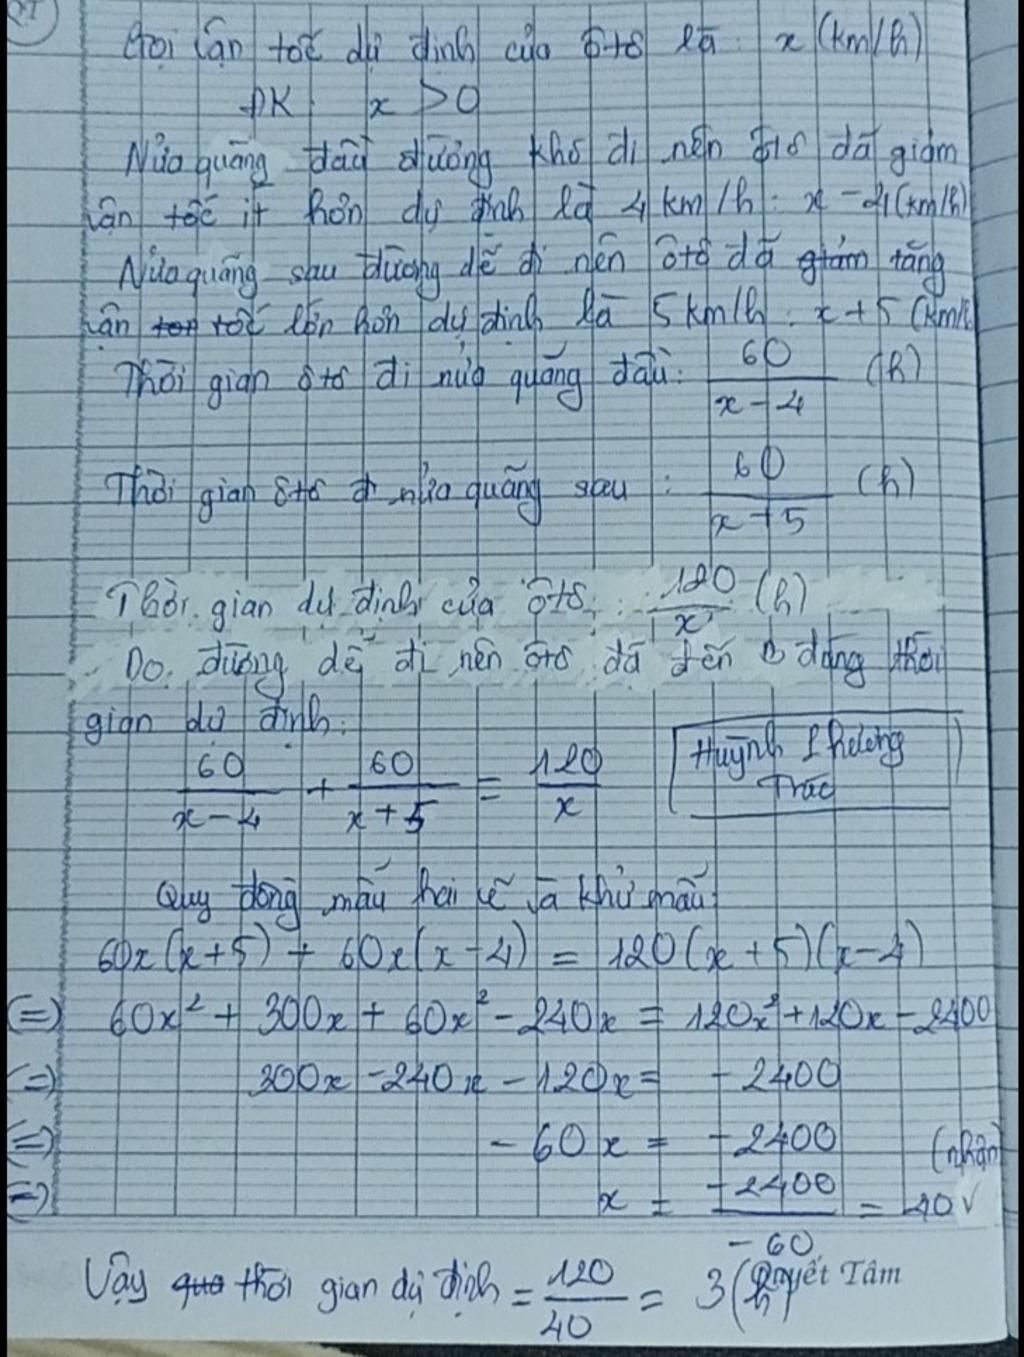 Gọi vận tốc dự định của ôtô là: x (km/h)
ĐK: x > 0
Nửa quãng đầu đường khó đi nên ôtô đã giảm
vận tốc ít hơn dự định là 4 km/h: x - 4 (km/h)
Nửa quãng sau đường dễ đi nên ôtô đã giảm tăng
vận tốc lớn hơn dự định là 5 km/h: x + 5 (km/h
Thời gian ôtô đi nửa quãng đầu: 60/(x - 4) (h)
Thời gian ôtô đi nửa quãng sau: 60/(x + 5) (h)
Thời gian dự định của ôtô: 120/x (h)
Do đường dễ đi nên ôtô đã đến B đúng thời
gian dự định:
60/(x - 4) + 60/(x + 5) = 120/x
Huỳnh Phương
Trúc
Quy đồng mẫu hai vế và khử mẫu:
60x(x+5) + 60x(x-4) = 120(x+5)(x-4)
(=) 60x² + 300x + 60x² - 240x = 120x² + 120x - 2400
(=) 300x - 240x - 120x = -2400
(=) -60x = -2400
(=) x = -2400/-60 = 40 (nhận)
Vậy thời gian dự định = 120/40 = 3 (h)
Quyết Tâm